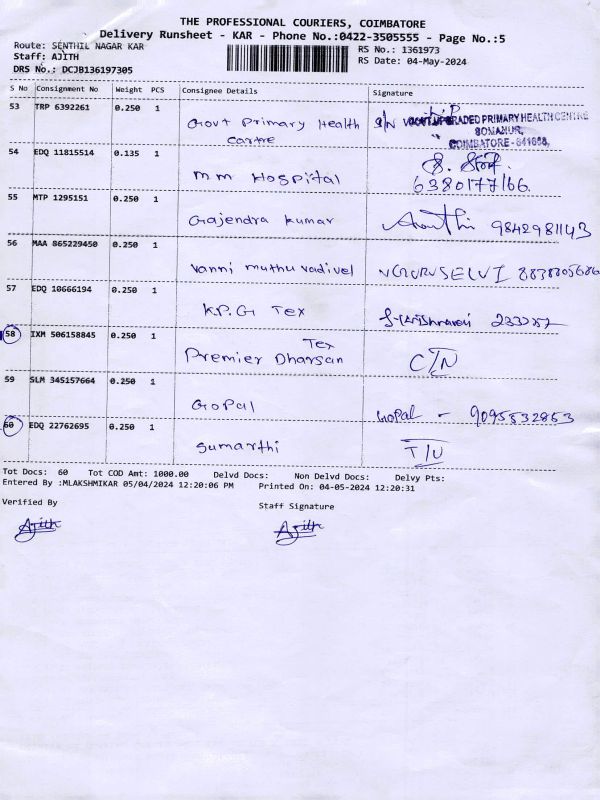 THE PROFESSIONAL COURIERS, COIMBATORE
Delivery Runsheet - KAR - Phone No.:0422-3505555 - Page No.:5
Route: SENTHIL NAGAR KAR
RS No.: 1361973
Staff: AJITH
RS Date: 04-May-2024
DRS No.: DCJB136197305
S No Consignment No Weight PCS Consignee Details Signature
53 TRP 6392261 0.250 1
Govt Primary Health
centre
S/N
UPGRADED PRIMARY HEALTH CENTRE
COIMBATORE - 641668,
54 EDQ 11815514 0.135 1
MM Hospital
6380177166.
55 MTP 1295151 0.250 1
Gajendra kumar 9842981143
56 MAA 865229450 0.250 1
Vanni muthu vadivel
57 EDQ 10666194 0.250 1
K.P.G Tex
58 IXM 506158845 0.250 1
Tex
Premier Dharsan C/N
59 SLM 345157664 0.250 1
Gopal Gopal - 9095532853
60 EDQ 22762695 0.250 1
Sumarthi T/U
Tot Docs: 60 Tot COD Amt: 1000.00 Delvd Docs: Non Delvd Docs: Delvy Pts:
Entered By :MLAKSHMIKAR 05/04/2024 12:20:06 PM Printed On: 04-05-2024 12:20:31
Verified By
Staff Signature
Ajith Ajith